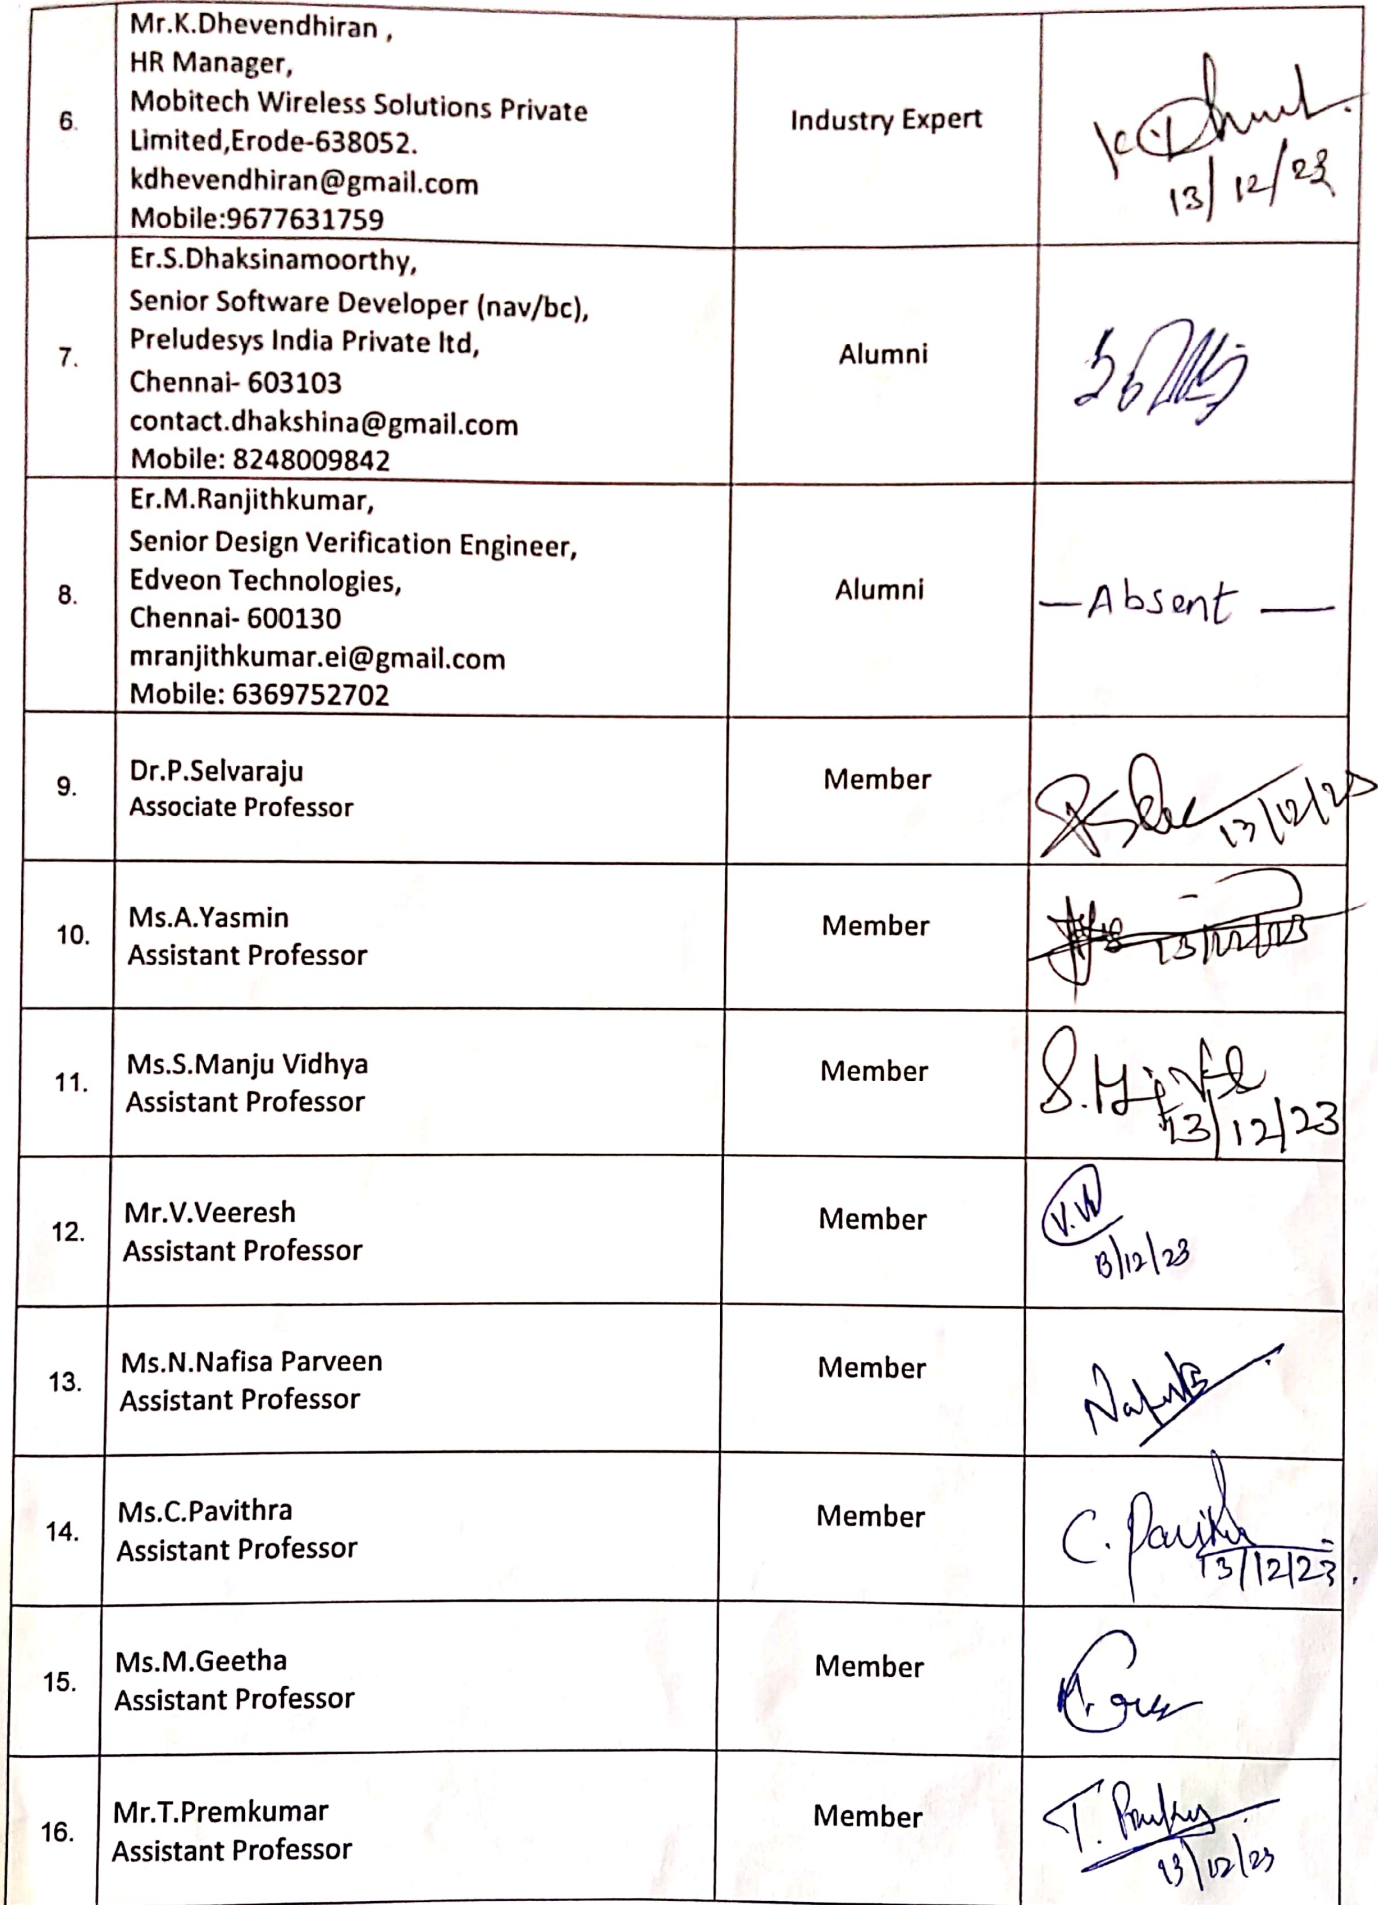 6.
Mr.K.Dhevendhiran ,
HR Manager,
Mobitech Wireless Solutions Private
Limited,Erode-638052.
kdhevendhiran@gmail.com
Mobile:9677631759
Industry Expert
13/12/23
7.
Er.S.Dhaksinamoorthy,
Senior Software Developer (nav/bc),
Preludesys India Private ltd,
Chennai- 603103
contact.dhakshina@gmail.com
Mobile: 8248009842
Alumni
8.
Er.M.Ranjithkumar,
Senior Design Verification Engineer,
Edveon Technologies,
Chennai- 600130
mranjithkumar.ei@gmail.com
Mobile: 6369752702
Alumni
—Absent —
9.
Dr.P.Selvaraju
Associate Professor
Member
13/12/23
10.
Ms.A.Yasmin
Assistant Professor
Member
13/12/23
11.
Ms.S.Manju Vidhya
Assistant Professor
Member
13/12/23
12.
Mr.V.Veeresh
Assistant Professor
Member
13/12/23
13.
Ms.N.Nafisa Parveen
Assistant Professor
Member
14.
Ms.C.Pavithra
Assistant Professor
Member
13/12/23.
15.
Ms.M.Geetha
Assistant Professor
Member
16.
Mr.T.Premkumar
Assistant Professor
Member
13/12/23